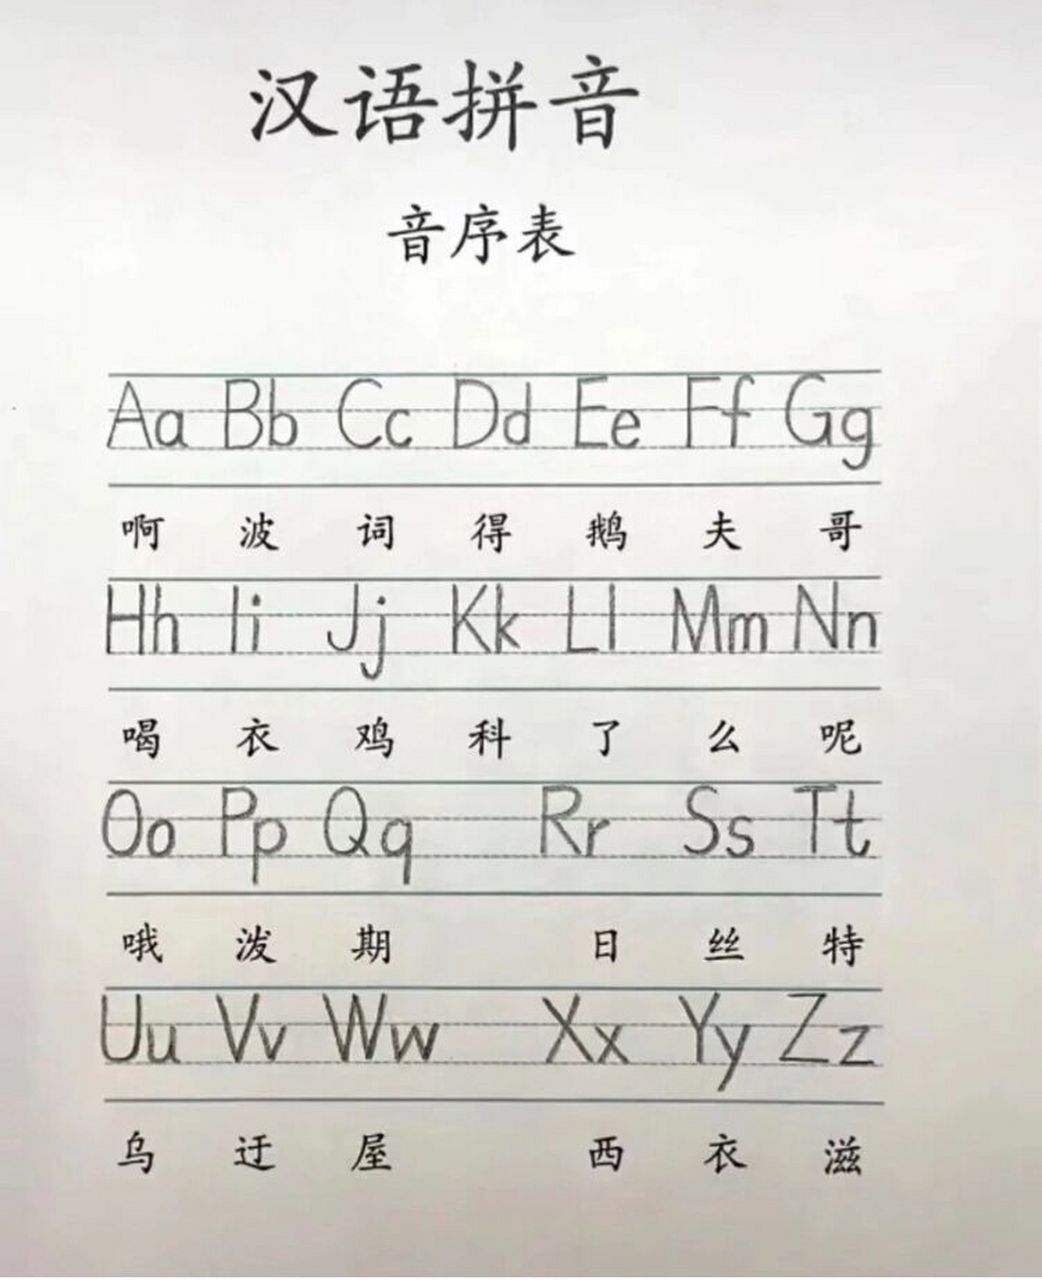 汉语拼音
音序表
Aa Bb Cc Dd Ee Ff Gg
啊 波 词 得 鹅 夫 哥
Hh Ii Jj Kk Ll Mm Nn
喝 衣 鸡 科 了 么 呢
Oo Pp Qq Rr Ss Tt
哦 泼 期 日 丝 特
Uu Vv Ww Xx Yy Zz
乌 迂 屋 西 衣 滋